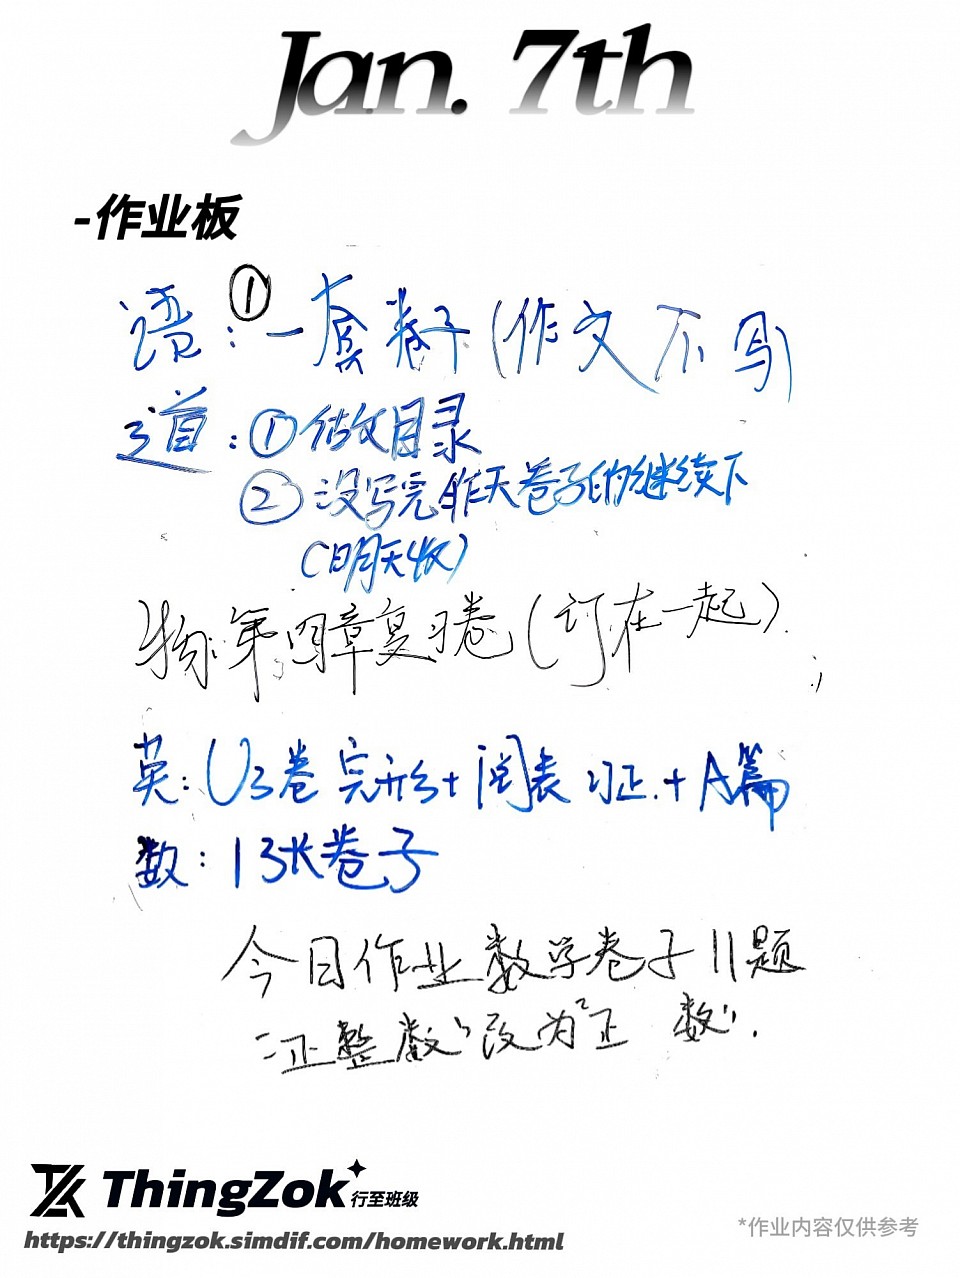 Jan. 7th
-作业板
语：①一套卷子(作文不写)
道：①做目录
②没写完昨天卷子的继续下
(明天收)
物：第四章复习卷(订在一起)
英：U3卷 完形+阅表 习正.+A篇
数：1张卷子
今日作业数学卷子11题
"正整数"改为"正 数".
ThingZok
行至班级
https://thingzok.simdif.com/homework.html
*作业内容仅供参考